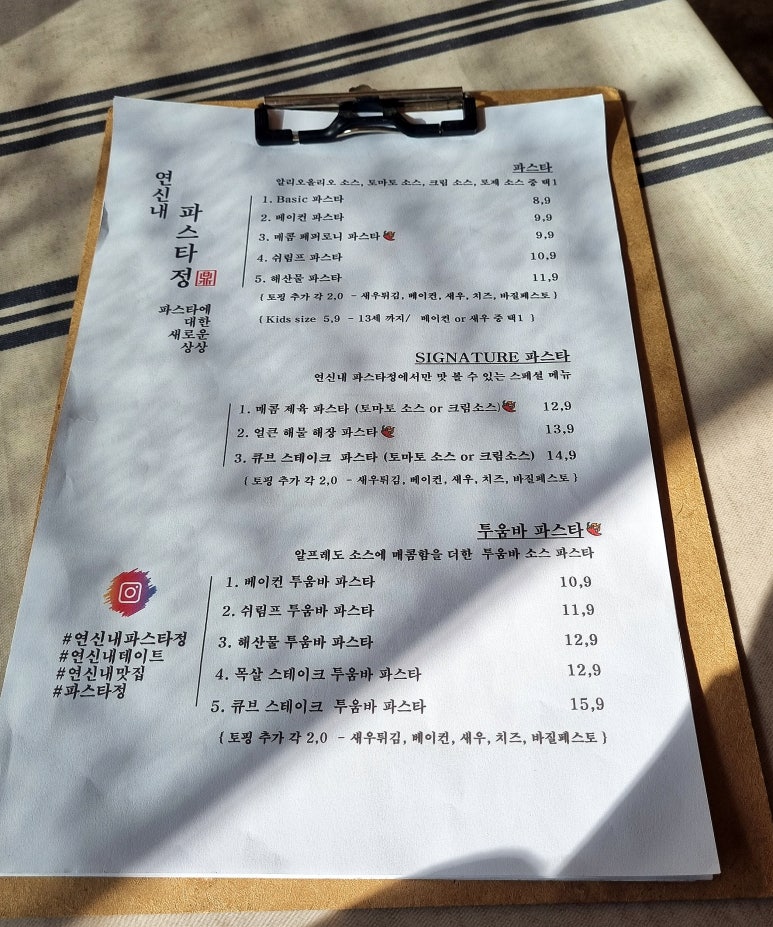 연신내
파스타정
파스타에
대한
새로운
상상
파스타
알리오올리오 소스, 토마토 소스, 크림 소스, 로제 소스 중 택1
1. Basic 파스타 8,9
2. 베이컨 파스타 9,9
3. 매콤 페퍼로니 파스타 9,9
4. 쉬림프 파스타 10,9
5. 해산물 파스타 11,9
{ 토핑 추가 각 2,0 - 새우튀김, 베이컨, 새우, 치즈, 바질페스토 }
{ Kids size 5,9 - 13세 까지/ 베이컨 or 새우 중 택1 }
SIGNATURE 파스타
연신내 파스타정에서만 맛 볼 수 있는 스페셜 메뉴
1. 매콤 제육 파스타 (토마토 소스 or 크림소스) 12,9
2. 얼큰 해물 해장 파스타 13,9
3. 큐브 스테이크 파스타 (토마토 소스 or 크림소스) 14,9
{ 토핑 추가 각 2,0 - 새우튀김, 베이컨, 새우, 치즈, 바질페스토 }
투움바 파스타
알프레도 소스에 매콤함을 더한 투움바 소스 파스타
1. 베이컨 투움바 파스타 10,9
2. 쉬림프 투움바 파스타 11,9
3. 해산물 투움바 파스타 12,9
4. 목살 스테이크 투움바 파스타 12,9
5. 큐브 스테이크 투움바 파스타 15,9
{ 토핑 추가 각 2,0 - 새우튀김, 베이컨, 새우, 치즈, 바질페스토 }
#연신내파스타정
#연신내데이트
#연신내맛집
#파스타정